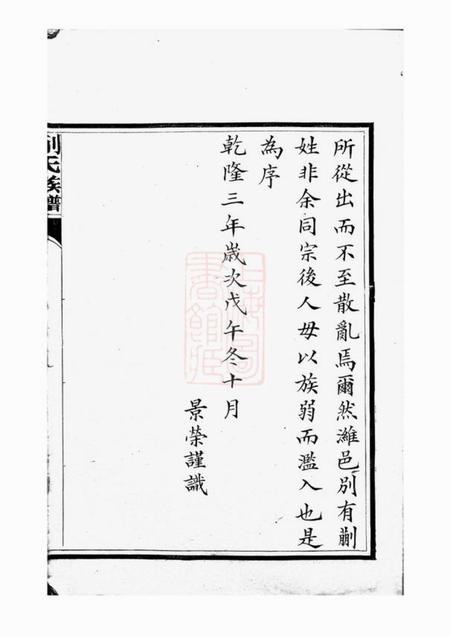 所從出而不至散亂焉爾然濰邑別有蒯
姓非余同宗後人毋以族弱而濫入也是
為序
乾隆三年歲次戊午冬十月
景榮謹識
氏族譜